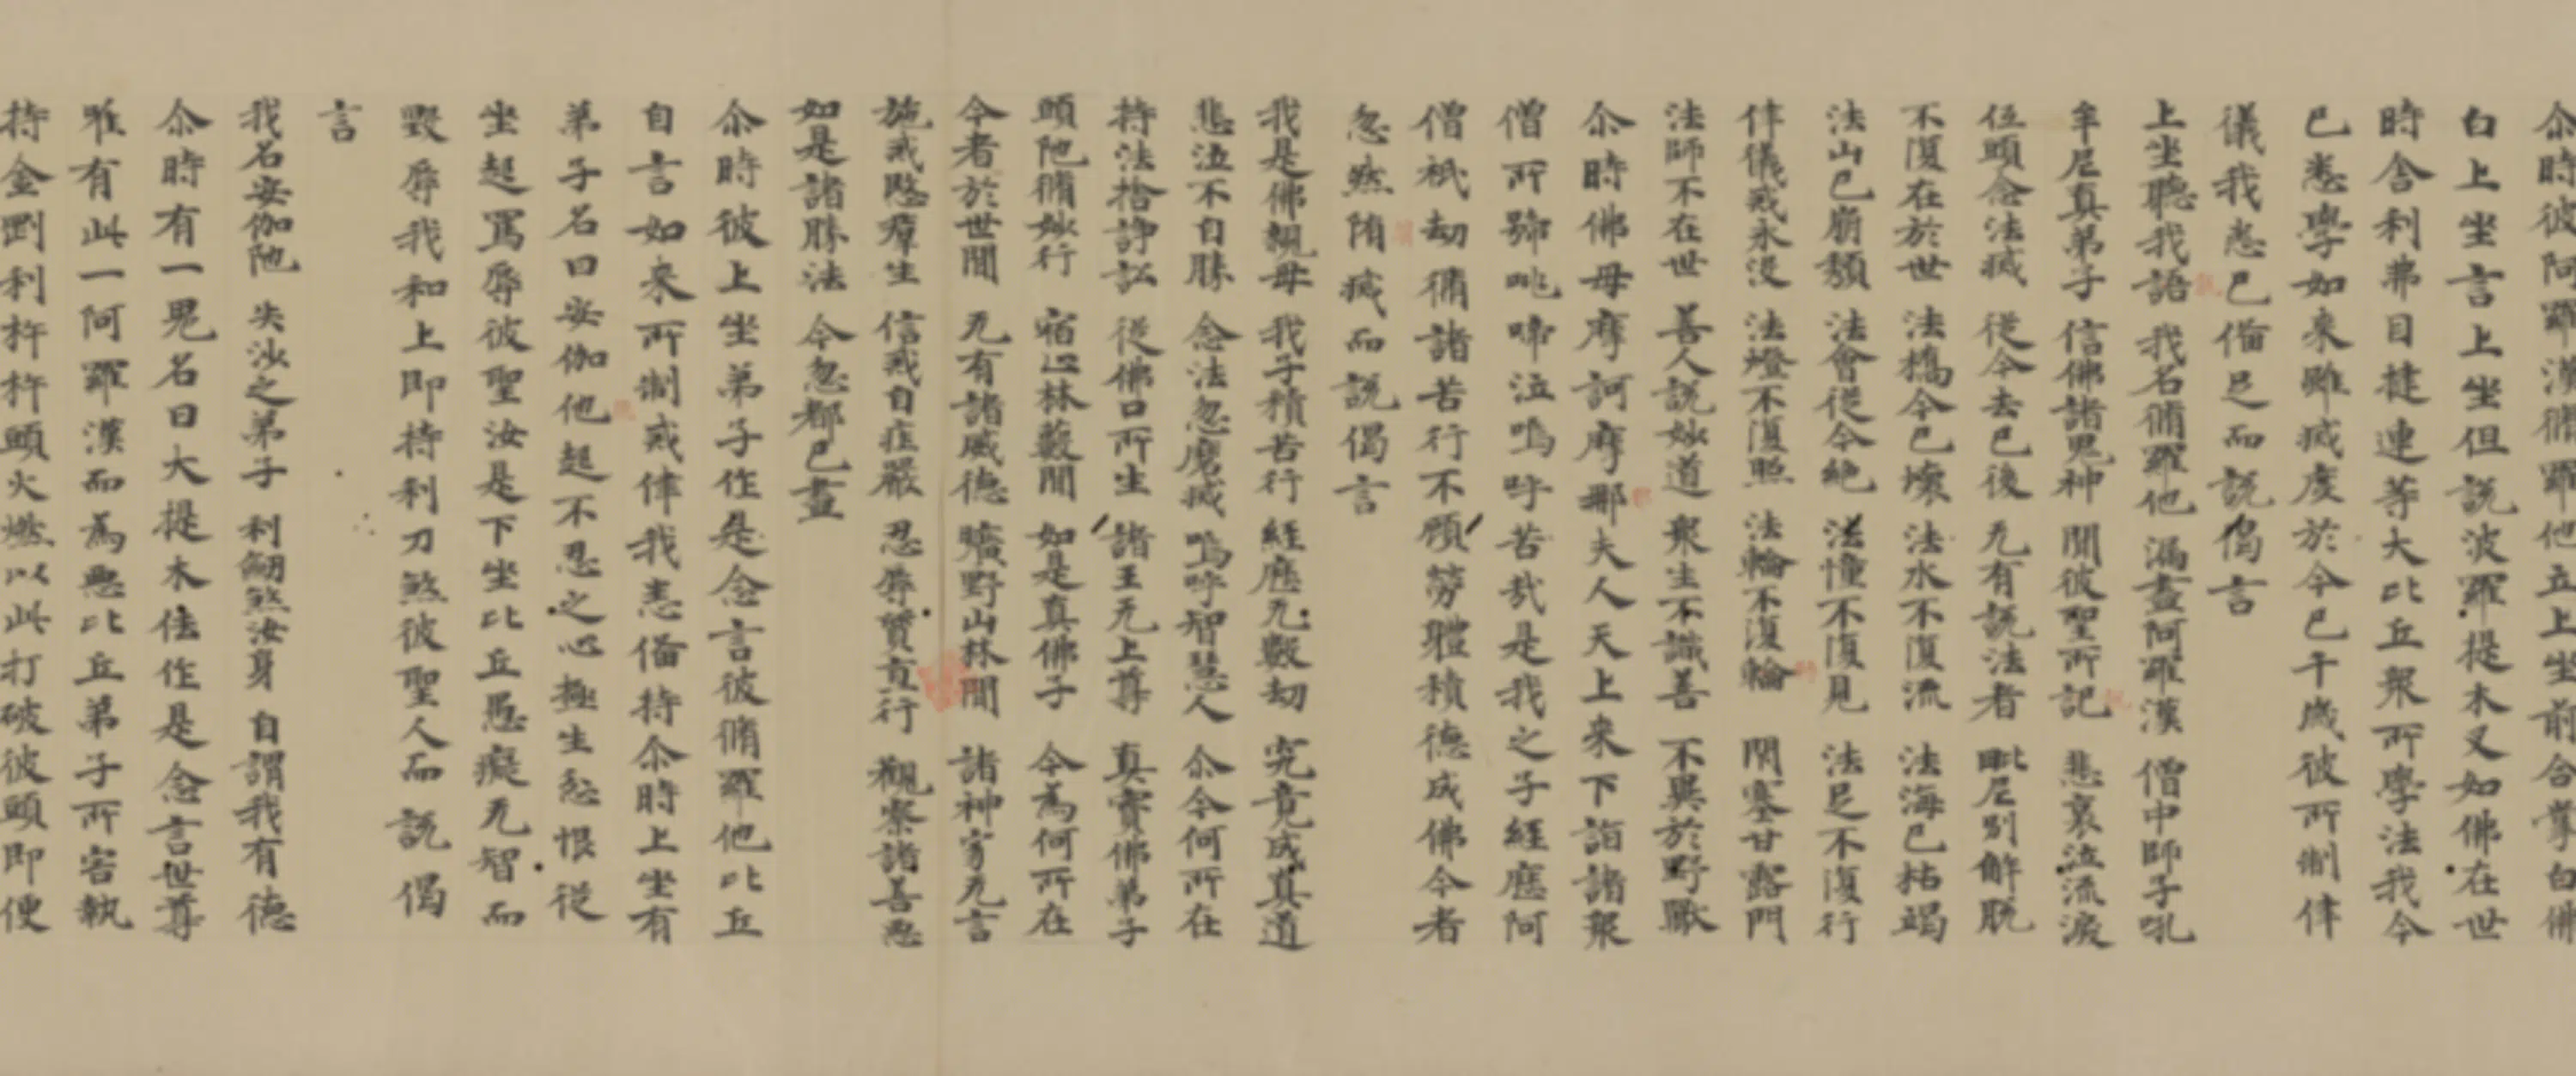 尒時彼阿羅漢脩羅他立上坐前合掌白佛
白上坐言上坐但說波羅提木叉如佛在世
時舍利弗目揵連等大比丘衆所學法我今
已悉學如来雖滅度於今已千歲彼所制律
儀我悉已偹足而說偈言
上坐聽我語 我名脩羅他 漏盡阿羅漢 僧中師子吼
牟尼真弟子 信佛諸鬼神 聞彼聖所記 悲哀泣流淚
位頭念法滅 從今去已後 无有說法者 毗尼別解脫
不復在於世 法橋今已壞 法水不復流 法海已枯竭
法山已崩頹 法會從今絕 法憧不復見 法足不復行
律儀戒永沒 法燈不復照 法輪不復輪 閇塞甘露門
法師不在世 善人說妙道 衆生不識善 不異於野獸
尒時佛母摩訶摩耶夫人天上来下詣諸衆
僧所號咷啼泣嗚呼苦哉是我之子經歷阿
僧祇劫脩諸苦行不顧勞體積德成佛今者
忽然隋滅而說偈言
我是佛親母 我子積苦行 經歷无數劫 究竟成真道
悲泣不自勝 念法忽磨滅 嗚呼智慧人 尒今何所在
持法捨諍訟 從佛口所生 諸王无上尊 真實佛弟子
頭陁脩妙行 宿止林藪間 如是真佛子 今為何所在
今者於世間 无有諸威德 曠野山林間 諸神寂无言
施戒愍羣生 信戒自莊嚴 忍辱質直行 觀察諸善惡
如是諸勝法 今忽都已盡
尒時彼上坐弟子作是念言彼脩羅他比丘
自言如来所制戒律我悉偹持尒時上坐有
弟子名曰安伽他起不忍之心極生忿恨從
坐起罵辱彼聖汝是下坐比丘愚癡无智而
毀辱我和上即持利刀煞彼聖人而說偈
言
我名安伽陁 失沙之弟子 利劒煞汝身 自謂我有德
尒時有一鬼名曰大提木佉作是念言世尊
唯有此一阿羅漢而為惡比丘弟子所害執
持金剛利杵杵頭火燃以此打破彼頭即便